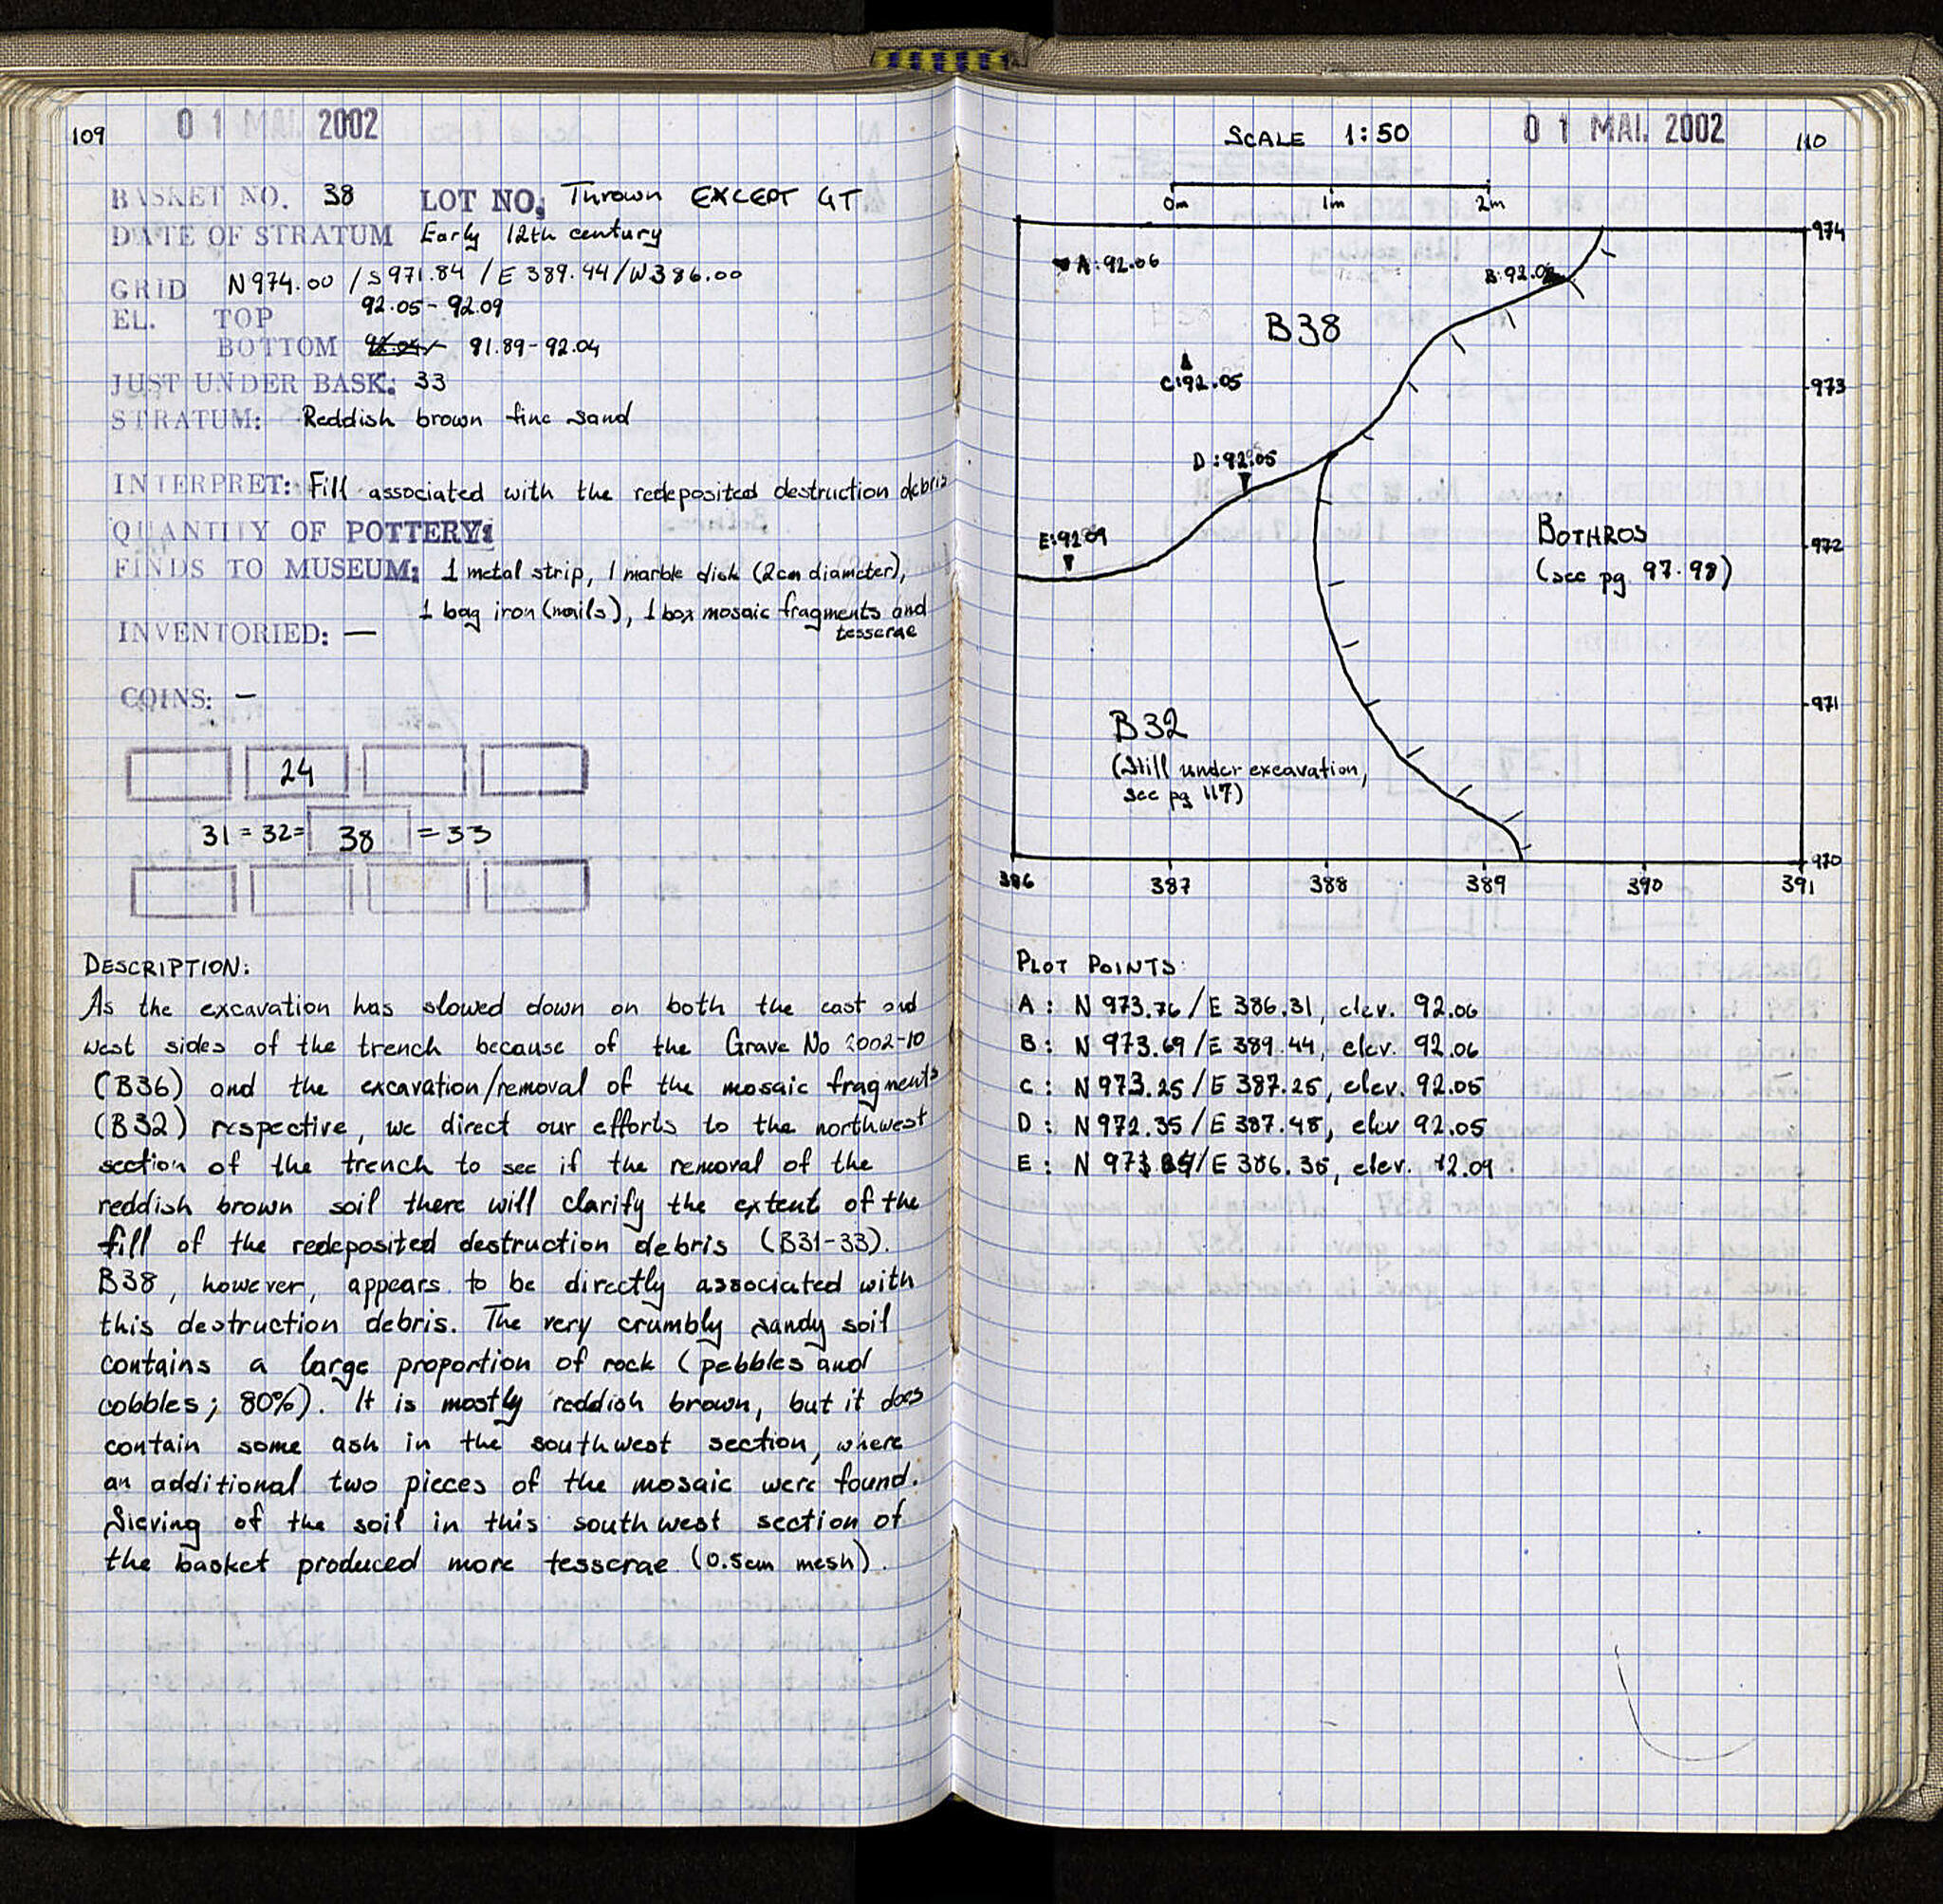 109
01 MAI 2002
BASKET NO. 38 LOT NO. Thrown EXCEPT GT
DATE OF STRATUM Early 12th century
GRID N974.00 / S971.84 / E 389.44 / W386.00
EL. TOP 92.05 - 92.09
BOTTOM 91.89 - 92.04
JUST UNDER BASK: 33
STRATUM: Reddish brown fine sand
INTERPRET: Fill associated with the redeposited destruction debris
QUANTITY OF POTTERY:
FINDS TO MUSEUM: 1 metal strip, 1 marble disk (2cm diameter),
1 bag iron (nails), 1 box mosaic fragments and
tesserae
INVENTORIED: —
COINS: –
24
31 = 32 = 38 = 33
DESCRIPTION:
As the excavation has slowed down on both the east and
west sides of the trench because of the Grave No 2002-10
(B36) and the excavation/removal of the mosaic fragments
(B32) respective, we direct our efforts to the northwest
section of the trench to see if the removal of the
reddish brown soil there will clarify the extent of the
fill of the redeposited destruction debris (B31-33).
B38, however, appears to be directly associated with
this destruction debris. The very crumbly sandy soil
contains a large proportion of rock (pebbles and
cobbles; 80%). It is mostly reddish brown, but it does
contain some ash in the southwest section, where
an additional two pieces of the mosaic were found.
Sieving of the soil in this southwest section of
the basket produced more tesserae (0.5cm mesh).
SCALE 1:50
01 MAI. 2002
110
0m 1m 2m
974
A:92.06
B:92.06
B38
C:92.05
973
D:92.05
E:92.09
BOTHROS
(see pg 97-98)
972
971
B32
(Still under excavation,
see pg 117)
970
386 387 388 389 390 391
PLOT POINTS:
A: N 973.76/E 386.31, elev. 92.06
B: N 973.69/E 389.44, elev. 92.06
C: N 973.25/E 387.25, elev. 92.05
D: N 972.35/E 387.48, elev 92.05
E: N /E 386.36, elev. 92.09